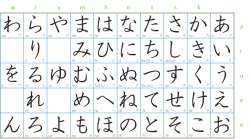 w r y m h n t s k
わ ら や ま は な た さ か あ a
り み ひ に ち し き い i
を る ゆ む ふ ぬ つ す く う u
れ め へ ね て せ け え e
ん ろ よ も ほ の と そ こ お o